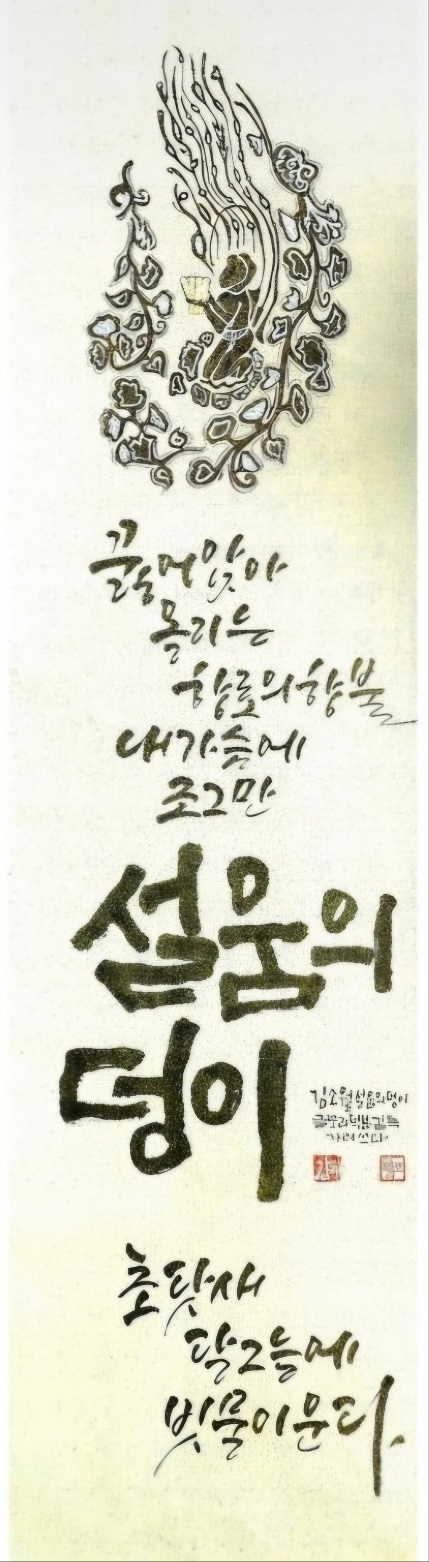 꿇어앉아
올리는
향로의향불
내가슴에
조그만
설움의
덩이
김소월설움의덩이
초닷새
달그늘에
빗물이운다.